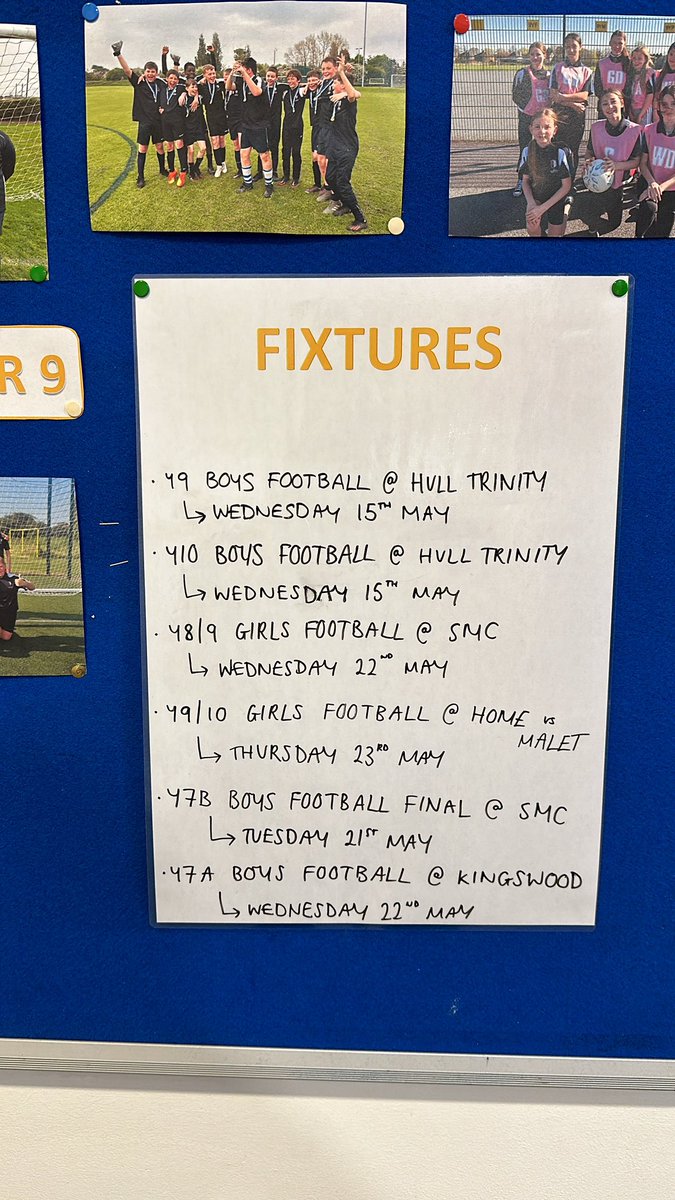 GD
WD
R 9
FIXTURES
· Y9 BOYS FOOTBALL @ HULL TRINITY
↳ WEDNESDAY 15TH MAY
· Y10 BOYS FOOTBALL @ HULL TRINITY
↳ WEDNESDAY 15TH MAY
· Y8/9 GIRLS FOOTBALL @ SMC
↳ WEDNESDAY 22ND MAY
· Y9/10 GIRLS FOOTBALL @ HOME vs
MALET
↳ THURSDAY 23RD MAY
· Y7B BOYS FOOTBALL FINAL @ SMC
↳ TUESDAY 21ST MAY
· Y7A BOYS FOOTBALL @ KINGSWOOD
↳ WEDNESDAY 22ND MAY